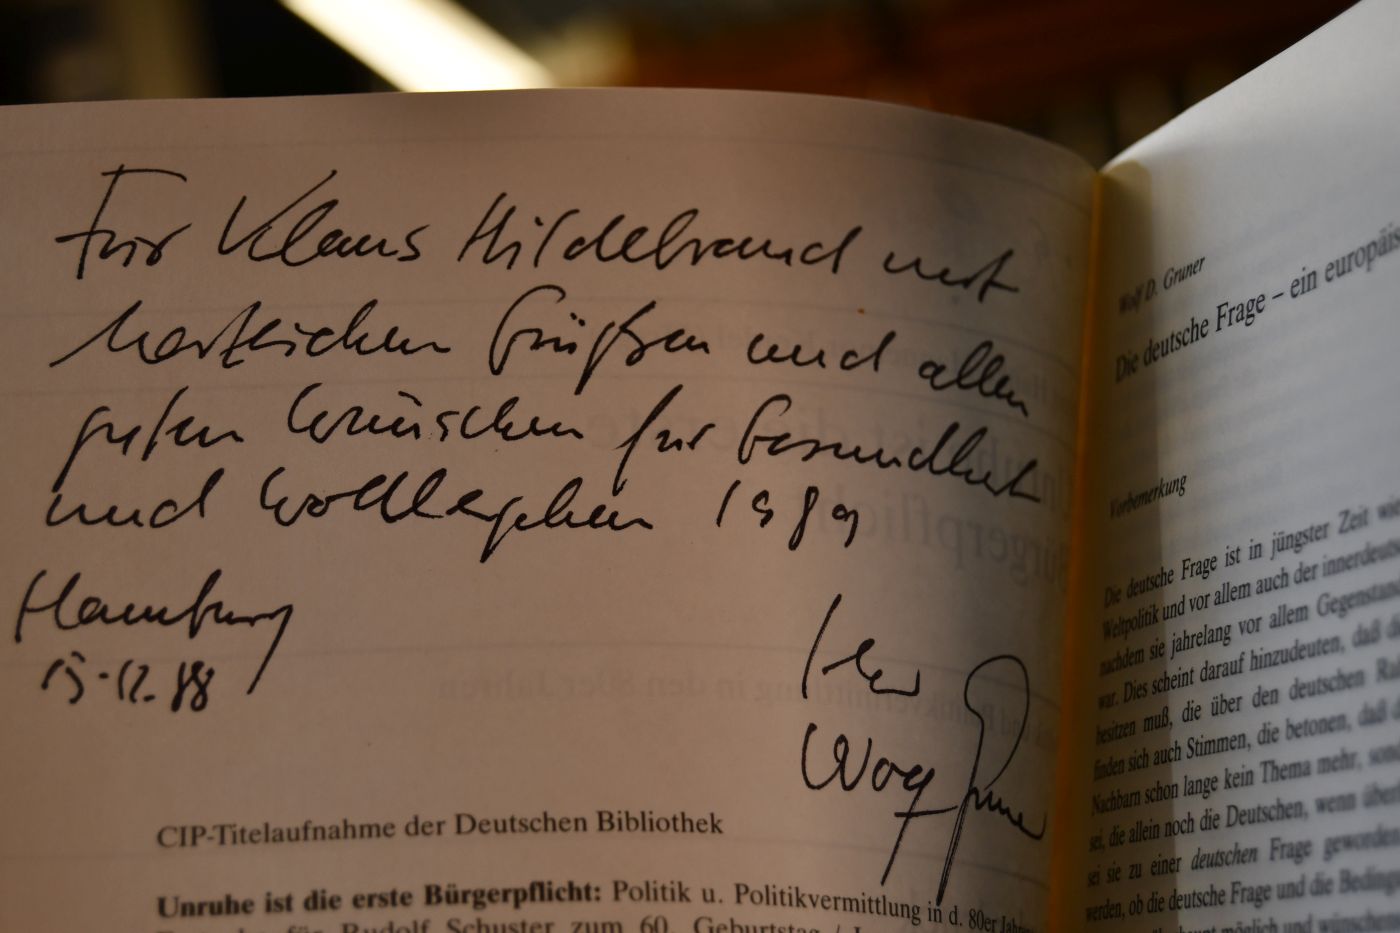 Für Klaus Hildebrand mit
herzlichen Grüßen und allen
guten Wünschen für Gesundheit
und Wohlergehen 1989
Hamburg
15.12.88
Ihr
Wolf Gruner
CIP-Titelaufnahme der Deutschen Bibliothek
Unruhe ist die erste Bürgerpflicht: Politik u. Politikvermittlung in d. 80er
für Rudolf Schuster zum 60. Geburtstag /
Wolf D. Gruner
Die deutsche Frage – ein europäis
Vorbemerkung
Die deutsche Frage ist in jüngster Zeit wie
Weltpolitik und vor allem auch der innerdeuts
nachdem sie jahrelang vor allem Gegenstand
war. Dies scheint darauf hinzudeuten, daß di
besitzen muß, die über den deutschen Ra
finden sich auch Stimmen, die betonen, daß d
Nachbarn schon lange kein Thema mehr, sond
sei, die allein noch die Deutschen, wenn überl
sei sie zu einer deutschen Frage geworden
werden, ob die deutsche Frage und die Beding
möglich und wünschens